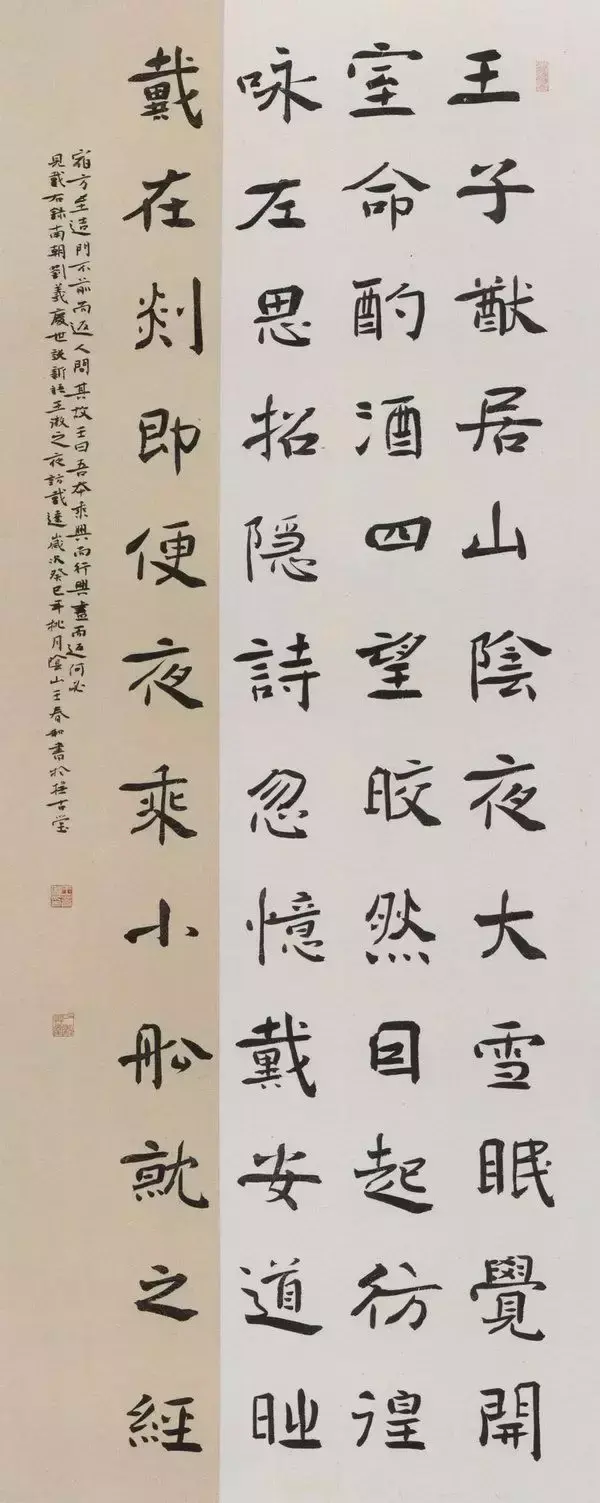 王子猷居山陰夜大雪眠覺開
室命酌酒四望皎然因起彷徨
咏左思招隐詩忽憶戴安道時
戴在剡即便夜乘小船就之經
宿方至造門不前而返人問其故王曰吾本乘興而行興盡而返何必
見戴右錄南朝劉義慶世說新語王徽之夜訪戴逵歲次癸巳年桃月陰山王春和書於古堂